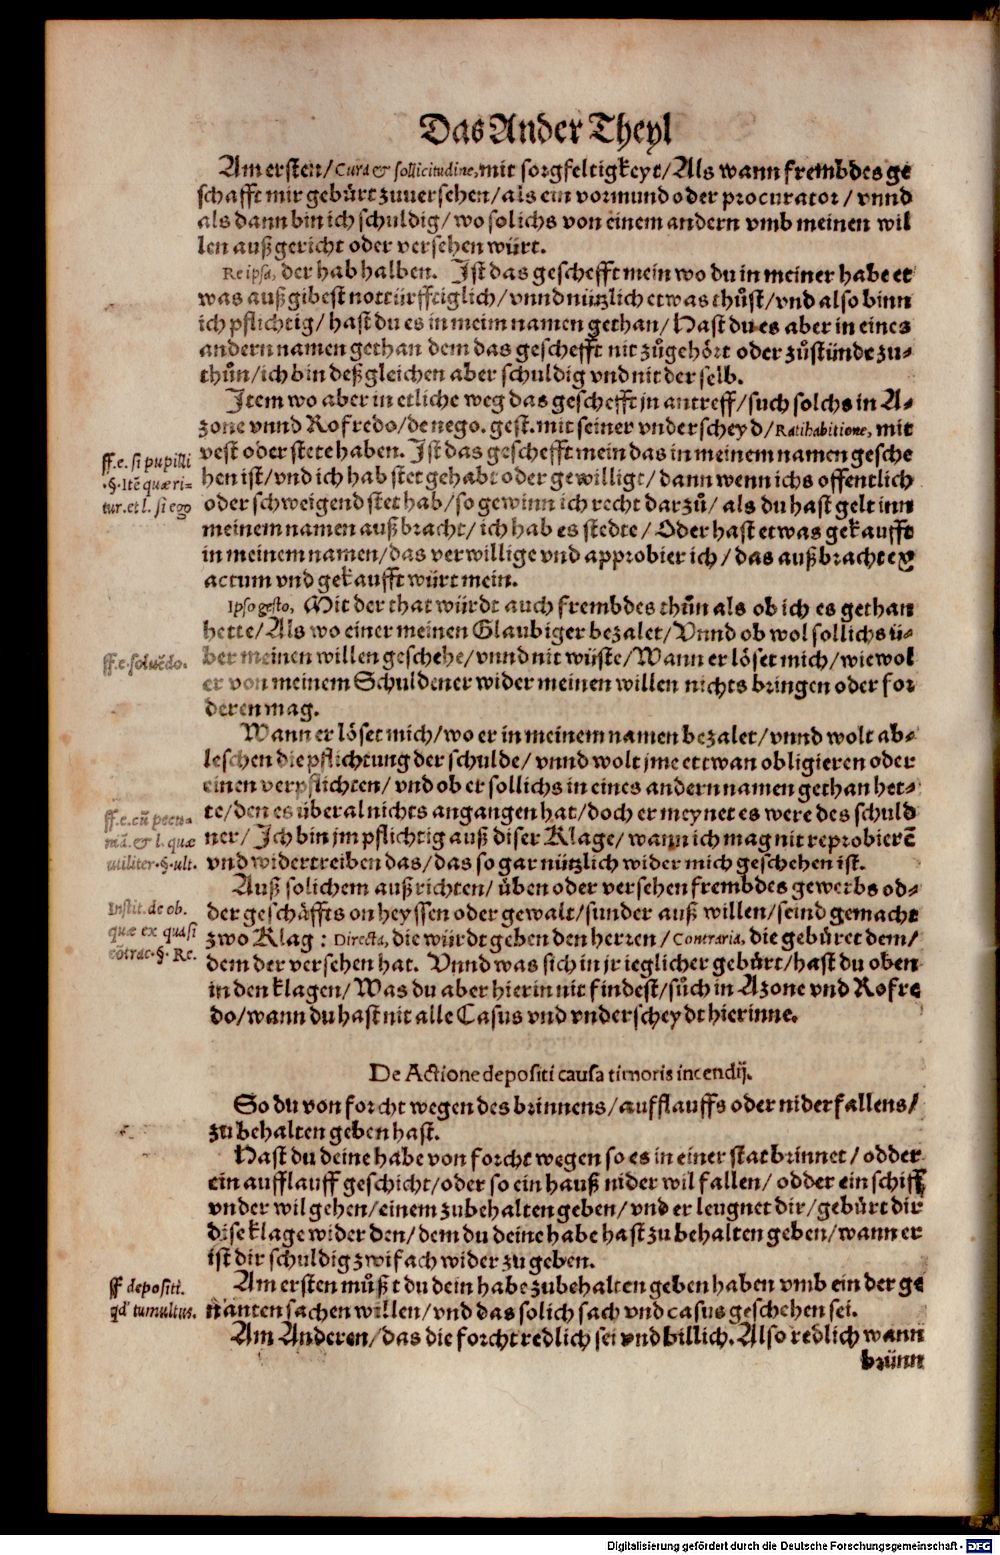 Das Ander Theyl
Am ersten/ Cura & sollicitudine, mit sorgfeltigkeyt/ Als wann frembdes ge
schafft mir gebürt zuuersehen/ als ein vormund oder procurator/ vnnd
als dann bin ich schuldig/ wo solichs von einem andern vmb meinen wil
len außgericht oder versehen würt.
Re ipsa, der hab halben. Ist das geschefft mein wo du in meiner habe et
was außgibest notturfftiglich/ vnnd nützlich etwas thůst/ vnd also binn
ich pflichtig/ hast du es in meim namen gethan/ Hast du es aber in eines
andern namen gethan dem das geschefft nit zůgehört oder zůstünde zu-
thůn/ ich bin deßgleichen aber schuldig vnd nit der selb.
Item wo aber in etliche weg das geschefft jn antreff/ such solchs in A-
zone vnnd Rofredo/ de nego. gest. mit seiner vnderscheyd/ Ratihabitione, mit
vest oder stete haben. Ist das geschefft mein das in meinem namen gesche
hen ist/ vnd ich hab stet gehabt oder gewilligt/ dann wenn ichs offentlich
oder schweigend stet hab/ so gewinn ich recht darzů/ als du hast gelt inn
meinem namen außbracht/ ich hab es stedte/ Oder hast etwas gekaufft
in meinem namen/ das verwillige vnd approbier ich/ das außbracht ex
actum vnd gekaufft würt mein.
ff. e. si pupilli
.§. Itē quæri-
tur. et l. si ego
Ipso gesto, Mit der that würdt auch frembdes thůn als ob ich es gethan
hette/ Als wo einer meinen Glaubiger bezalet/ Vnnd ob wol sollichs ü-
ber meinen willen geschehe/ vnnd nit wüste/ Wann er löset mich/ wiewol
er von meinem Schuldener wider meinen willen nichts bringen oder for
deren mag.
ff. e. soluēdo.
Wann er löset mich/ wo er in meinem namen bezalet/ vnnd wolt ab-
leschen die pflichtung der schulde/ vnnd wolt jme ettwan obligieren oder
einen verpflichten/ vnd ob er sollichs in eines andern namen gethan het-
te/ den es überal nichts angangen hat/ doch er meynet es were des schuld
ner/ Ich bin jm pflichtig auß diser Klage/ wann ich mag nit reprobierē
vnd widertreiben das/ das so gar nützlich wider mich geschehen ist.
ff. e. cū pecu-
niā. & l. quæ
utiliter. §. ult.
Auß solichem außrichten/ üben oder versehen frembdes gewerbs od-
der geschäffts on heyssen oder gewalt/ sunder auß willen/ seind gemacht
zwo Klag: Directa, die würdt geben den herren/ Contraria, die gebüret dem/
dem der versehen hat. Vnnd was sich in jr ieglicher gebürt/ hast du oben
in den klagen/ Was du aber hierin nit findest/ sůch in Azone vnd Rofre
do/ wann du hast nit alle Casus vnd vnderscheydt hierinne.
Instit. de ob.
quæ ex quasi
cōtrac. §. Re.
De Actione depositi causa timoris incendij.
So du von forcht wegen des brinnens/ aufflauffs oder niderfallens/
zu behalten geben hast.
Hast du deine habe von forcht wegen so es in einer stat brinnet/ odder
ein aufflauff geschicht/ oder so ein hauß nider wil fallen/ odder ein schiff
vnder wil gehen/ einem zubehalten geben/ vnd er leugnet dir/ gebürt dir
dise klage wider den/ dem du deine habe hast zu behalten geben/ wann er
ist dir schuldig zwifach wider zu geben.
Am ersten můßt du dein habe zubehalten geben haben vmb ein der ge
nanten sachen willen/ vnd das solich sach vnd casus geschehen sei.
ff depositi.
qd' tumultus.
Am Anderen/ das die forcht redlich sei vnd billich. Also redlich wann
brünn
Digitalisierung gefördert durch die Deutsche Forschungsgemeinschaft - DFG